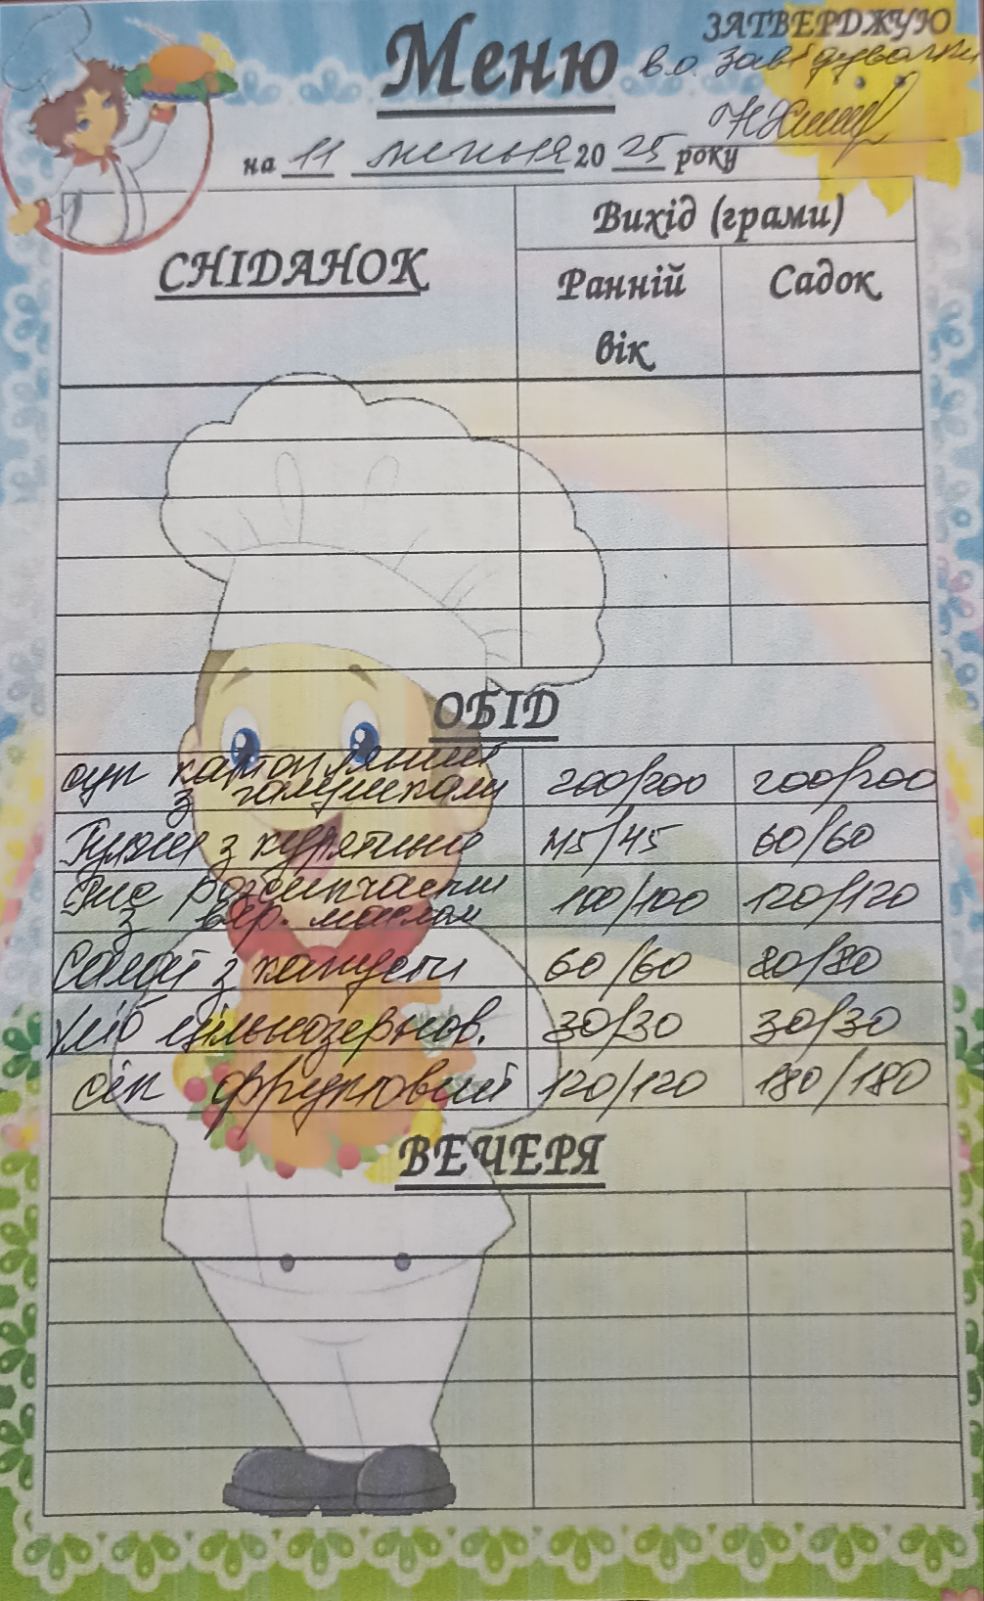 Меню
ЗАТВЕРДЖУЮ
в.о. завідувачки
на 11 липня 2025 року
СНІДАНОК
Вихід (грами)
Ранній вік
Садок
ОБІД
суп картопляний з галушками 200/200 200/200
Гуляш з курятини 45/45 60/60
Рис розсипчастий з вер. маслом 100/100 120/120
Салат з капусти 60/60 80/80
хліб цільнозернов. 30/30 30/30
сік фруктовий 120/120 180/180
ВЕЧЕРЯ